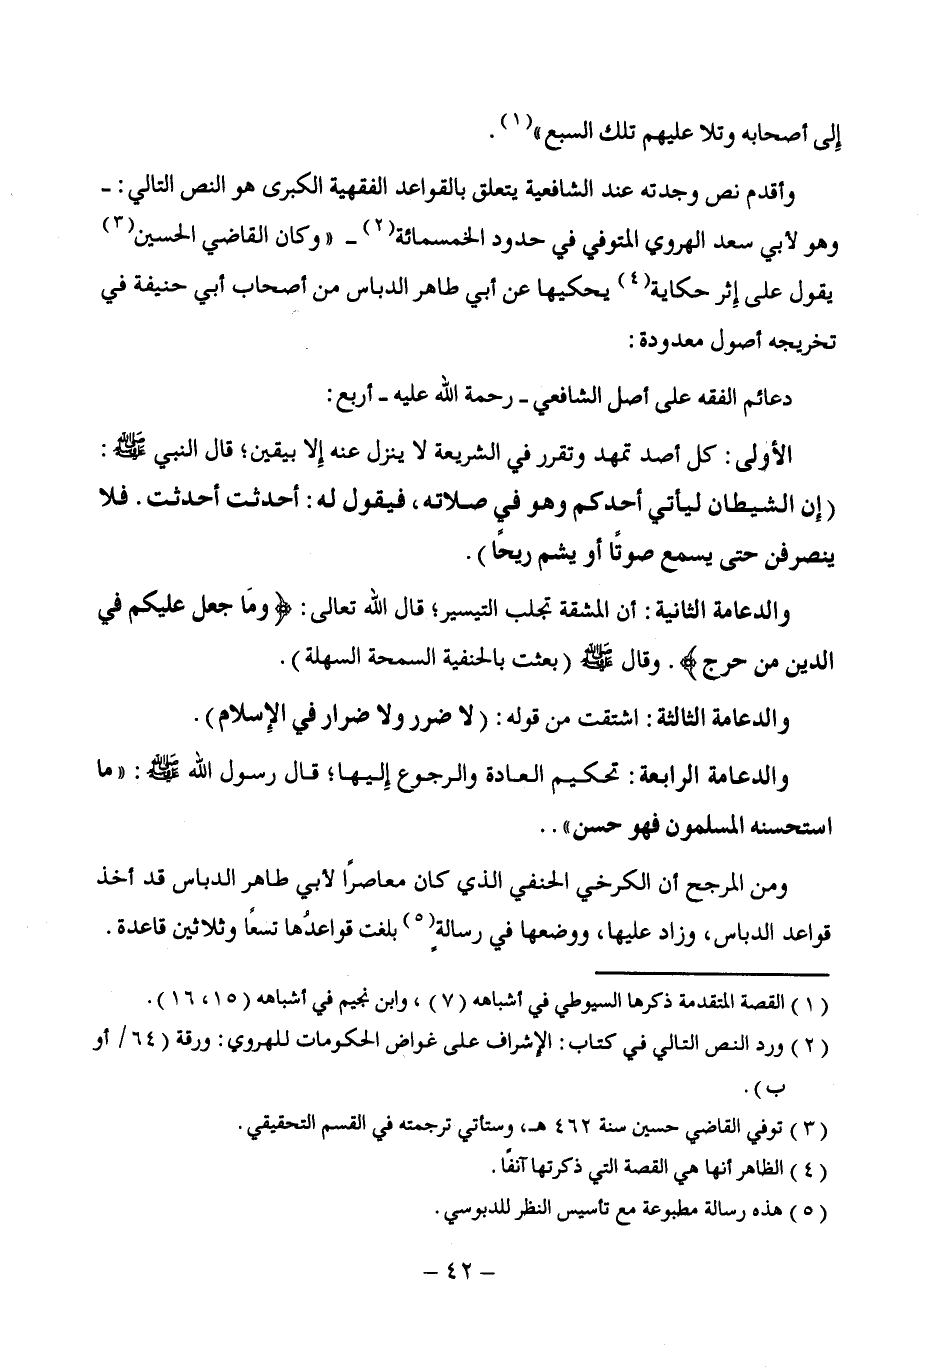 إلى أصحابه وتلا عليهم تلك السبع»(١) .
وأقدم نص وجدته عند الشافعية يتعلق بالقواعد الفقهية الكبرى هو النص التالي : ـ
وهو لأبي سعد الهروي المتوفي في حدود الخمسمائة(٢) ـ « وكان القاضي الحسين(٣)
يقول على إثر حكاية(٤) يحكيها عن أبي طاهر الدباس من أصحاب أبي حنيفة في
تخريجه أصول معدودة :
دعائم الفقه على أصل الشافعي ـ رحمة الله عليه ـ أربع :
الأولى : كل أصد تمهد وتقرر في الشريعة لا ينزل عنه إلا بيقين؛ قال النبي ﷺ :
( إن الشيطان ليأتي أحدكم وهو في صلاته، فيقول له : أحدثت أحدثت . فلا
ينصرفن حتى يسمع صوتًا أو يشم ريحًا ) .
والدعامة الثانية : أن المشقة تجلب التيسير؛ قال الله تعالى : ﴿ ومَا جعل عليكم في
الدين من حرج ﴾ . وقال ﷺ ( بعثت بالحنفية السمحة السهلة ) .
والدعامة الثالثة : اشتقت من قوله : ( لا ضرر ولا ضرار في الإسلام ) .
والدعامة الرابعة : تحكيم العادة والرجوع إليها؛ قال رسول الله ﷺ : « ما
استحسنه المسلمون فهو حسن» . .
ومن المرجح أن الكرخي الحنفي الذي كان معاصرًا لأبي طاهر الدباس قد أخذ
قواعد الدباس، وزاد عليها، ووضعها في رسالةٍ(٥) بلغت قواعدُها تسعًا وثلاثين قاعدة .
( ١ ) القصة المتقدمة ذكرها السيوطي في أشباهه ( ٧ ) ، وابن نجيم في أشباهه ( ١٥ ، ١٦ ) .
( ٢ ) ورد النص التالي في كتاب : الإشراف على غواض الحكومات للهروي : ورقة ( ٦٤ / أو
ب ) .
( ٣ ) توفي القاضي حسين سنة ٤٦٢ هـ، وستأتي ترجمته في القسم التحقيقي .
( ٤ ) الظاهر أنها هي القصة التي ذكرتها آنفًا .
( ٥ ) هذه رسالة مطبوعة مع تأسيس النظر للدبوسي .
– ٤٢ –